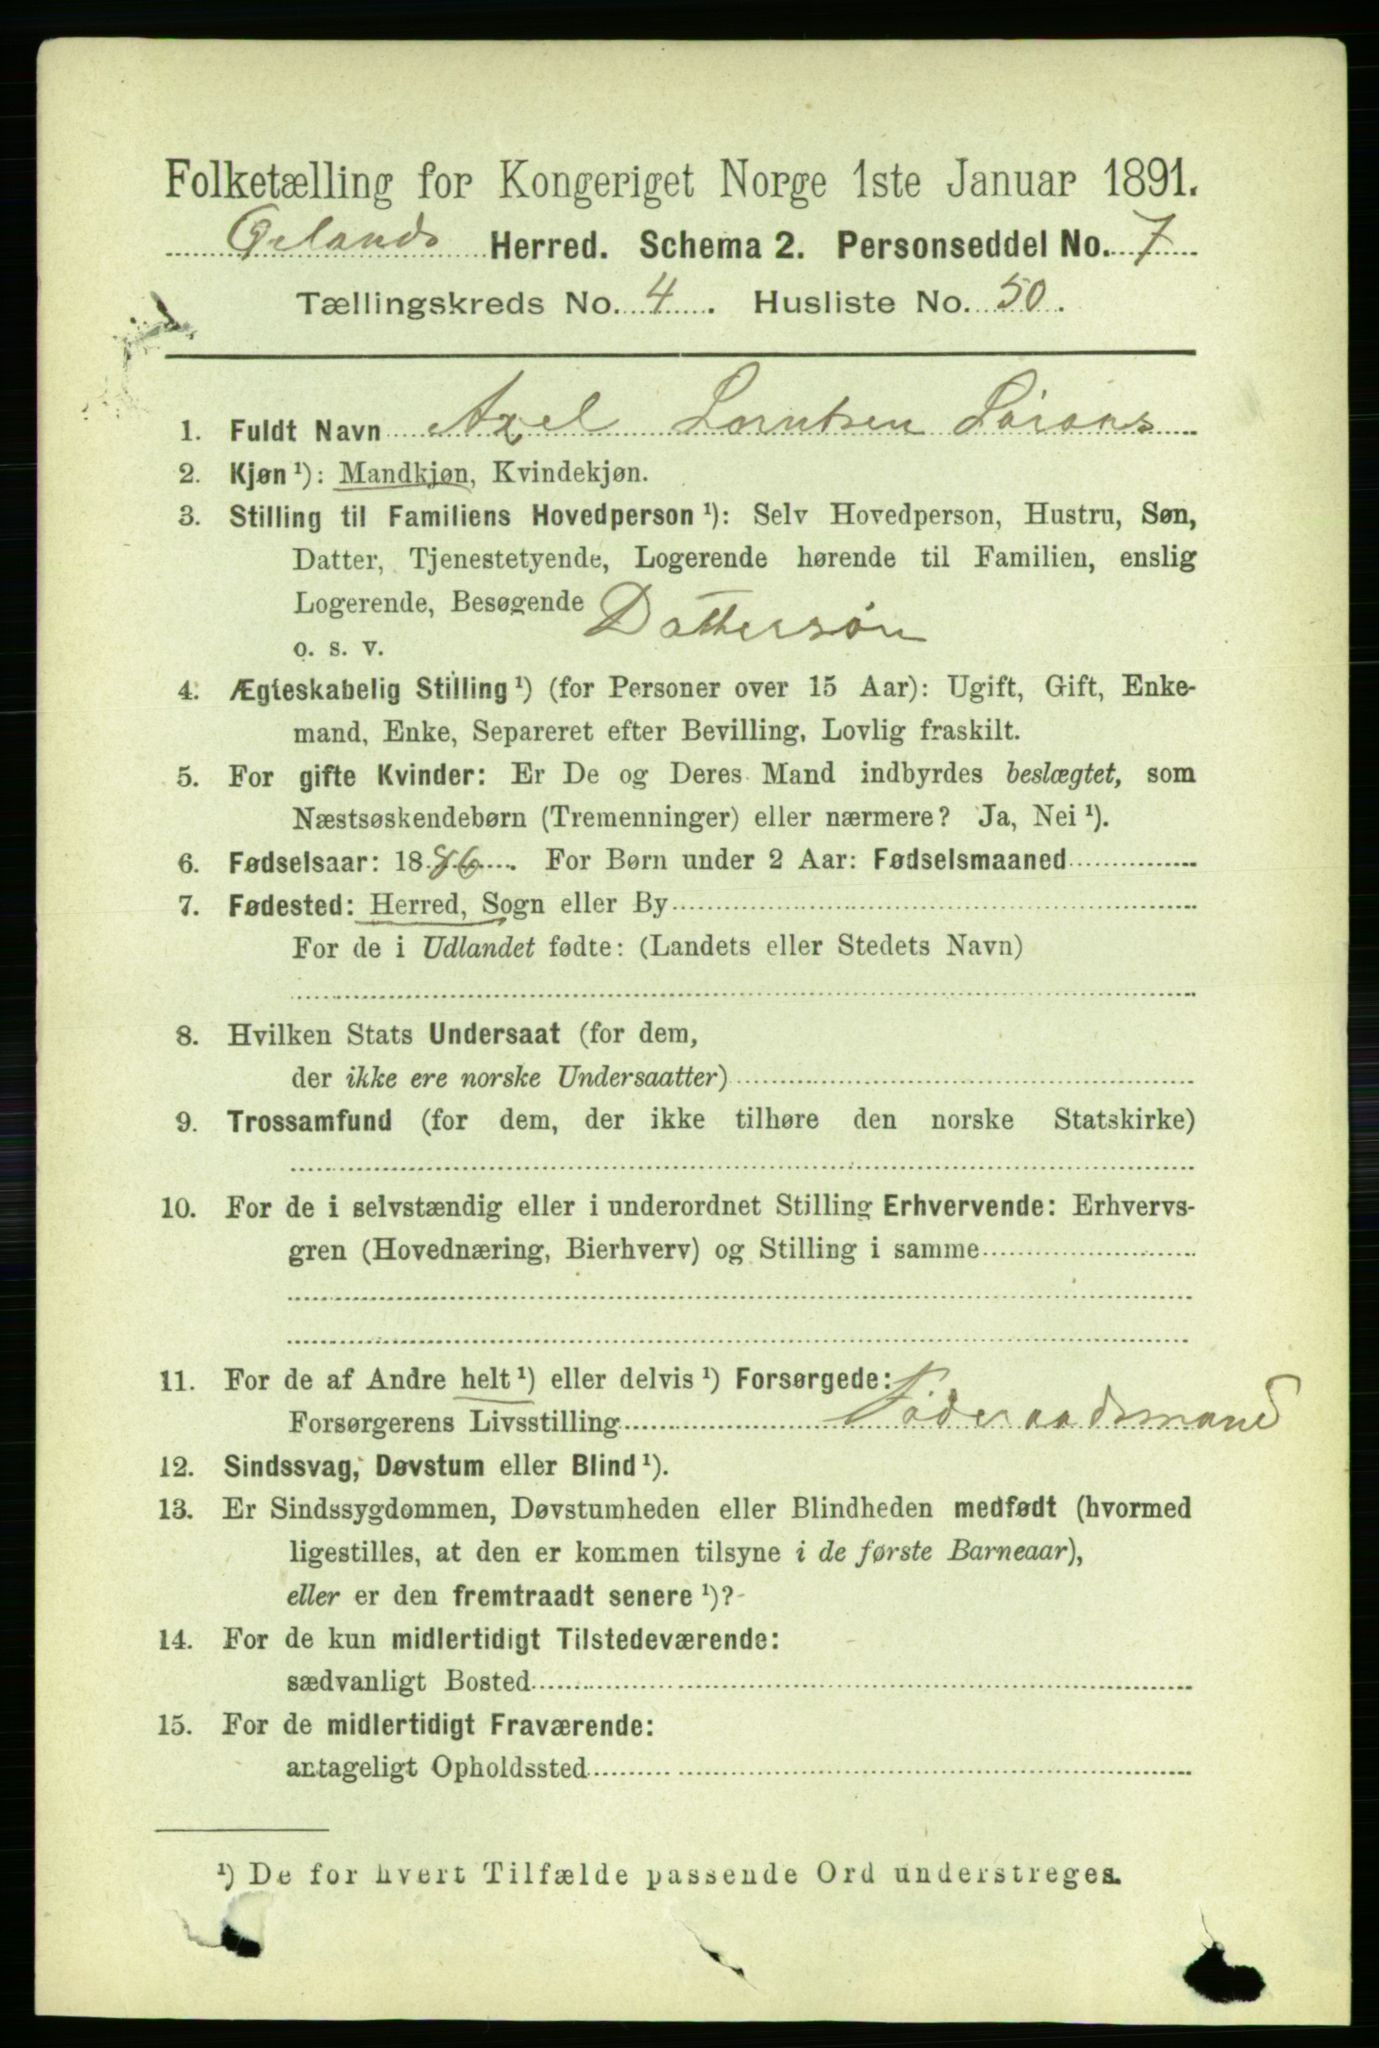 Folketælling for Kongeriget Norge 1ste Januar 1891.
Ørlands Herred. Schema 2. Personseddel No. 7
Tællingskreds No. 4. Husliste No. 50.
1. Fuldt Navn Axel Lorntsen
2. Kjøn ¹): Mandkjøn, Kvindekjøn.
3. Stilling til Familiens Hovedperson ¹): Selv Hovedperson, Hustru, Søn,
Datter, Tjenestetyende, Logerende hørende til Familien, enslig
Logerende, Besøgende Dattersøn
o. s. v.
4. Ægteskabelig Stilling ¹) (for Personer over 15 Aar): Ugift, Gift, Enke-
mand, Enke, Separeret efter Bevilling, Lovlig fraskilt.
5. For gifte Kvinder: Er De og Deres Mand indbyrdes beslægtet, som
Næstsøskendebørn (Tremenninger) eller nærmere? Ja, Nei ¹).
6. Fødselsaar: 1886. For Børn under 2 Aar: Fødselsmaaned
7. Fødested: Herred, Sogn eller By
For de i Udlandet fødte: (Landets eller Stedets Navn)
8. Hvilken Stats Undersaat (for dem,
der ikke ere norske Undersaatter)
9. Trossamfund (for dem, der ikke tilhøre den norske Statskirke)
10. For de i selvstændig eller i underordnet Stilling Erhvervende: Erhvervs-
gren (Hovednæring, Bierhverv) og Stilling i samme
11. For de af Andre helt ¹) eller delvis ¹) Forsørgede:
Forsørgerens Livsstilling Føderaadsmand
12. Sindssvag, Døvstum eller Blind ¹).
13. Er Sindssygdommen, Døvstumheden eller Blindheden medfødt (hvormed
ligestilles, at den er kommen tilsyne i de første Barneaar),
eller er den fremtraadt senere ¹)?
14. For de kun midlertidigt Tilstedeværende:
sædvanligt Bosted
15. For de midlertidigt Fraværende:
antageligt Opholdssted
¹) De for hvert Tilfælde passende Ord understreges.